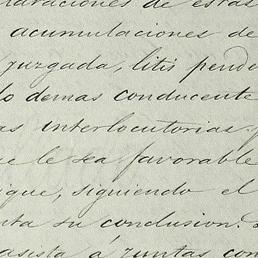 araciones de estas
acumulaciones de
juzgada, litis pende
lo demas conducente
as interlocutorias.
ue le sea favorable
ique, siguiendo el
nta su conclusion.
asista á juntas con